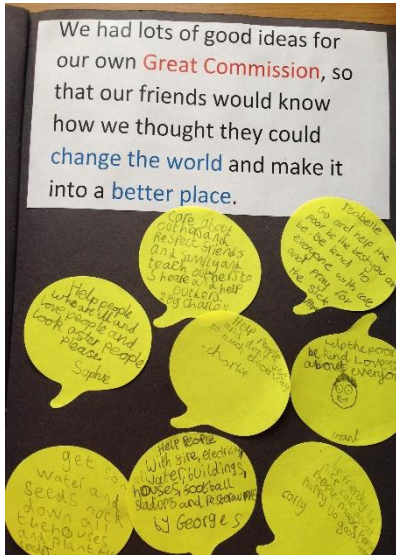 We had lots of good ideas for
our own Great Commission, so
that our friends would know
how we thought they could
change the world and make it
into a better place.
Care about
outhers and
Respect friends
and family and
teach outhers to
sheare and help
outhers.
by Charley
Isabelle
Go and help the
poor be the best you can
be be kind to
everyone with care
and pray for
the sick
Help people
who are ill and
love people and
look after people
please
Sophie
Help People
and don't
to much
-charlie
help the Poor
be kind Love
about everyone
get
water and
seeds nock
down all
the houses
and plant
seeds
Help People
with fire, electricity
water, buildings,
houses, football
stadiums and restaurants
by George S
friendly
People
happy be good
carly